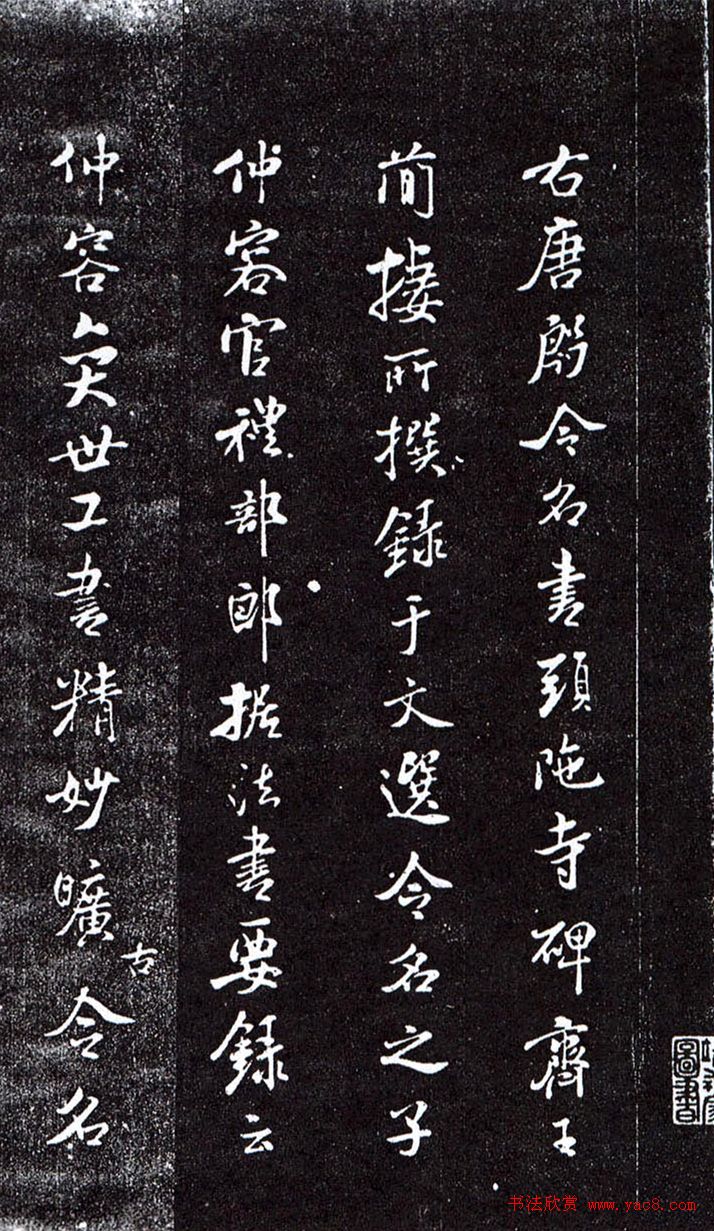 右唐殷令名書頭陁寺碑齊王
簡棲所撰錄于文選令名之子
仲容官禮部郎据法書要錄云
仲容奕世工書精妙曠古令名
圖書
书法欣赏 www.yac8.com